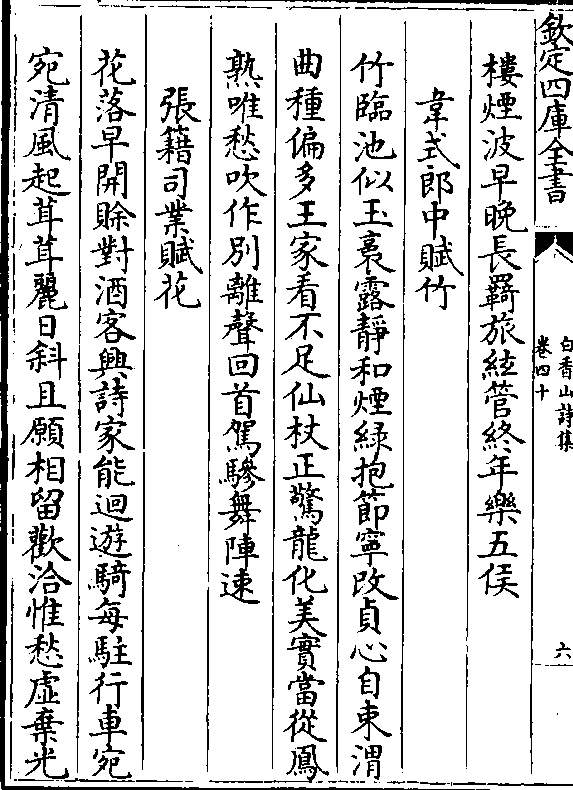 欽定四庫全書
白香山詩集
卷四十
六
樓煙波早晚長羇旅絃管終年樂五侯
韋式郎中賦竹
竹臨池似玉裛露靜和煙緑抱節寧改貞心自束渭
曲種偏多王家看不足仙杖正驚龍化美實當從鳳
熟唯愁吹作別離聲回首駕驂舞陣速
張籍司業賦花
花落早開賒對酒客興詩家能迴遊騎每駐行車宛
宛清風起茸茸麗日斜且願相留歡洽惟愁虛棄光